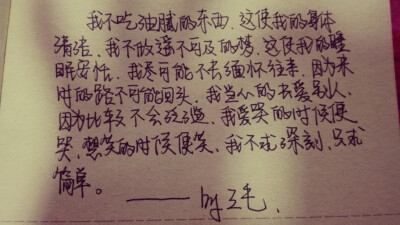 我不吃油腻的东西，这使我的身体
清洁。我不做遥不可及的梦，这使我的睡
眠安恬。我尽可能不去缅怀往事，因为来
时的路不可能回头。我当心的去爱别人，
因为比较不会泛滥。我爱哭的时候便
哭，想笑的时候便笑，我不求深刻，只求
简单。
—— by 三毛.